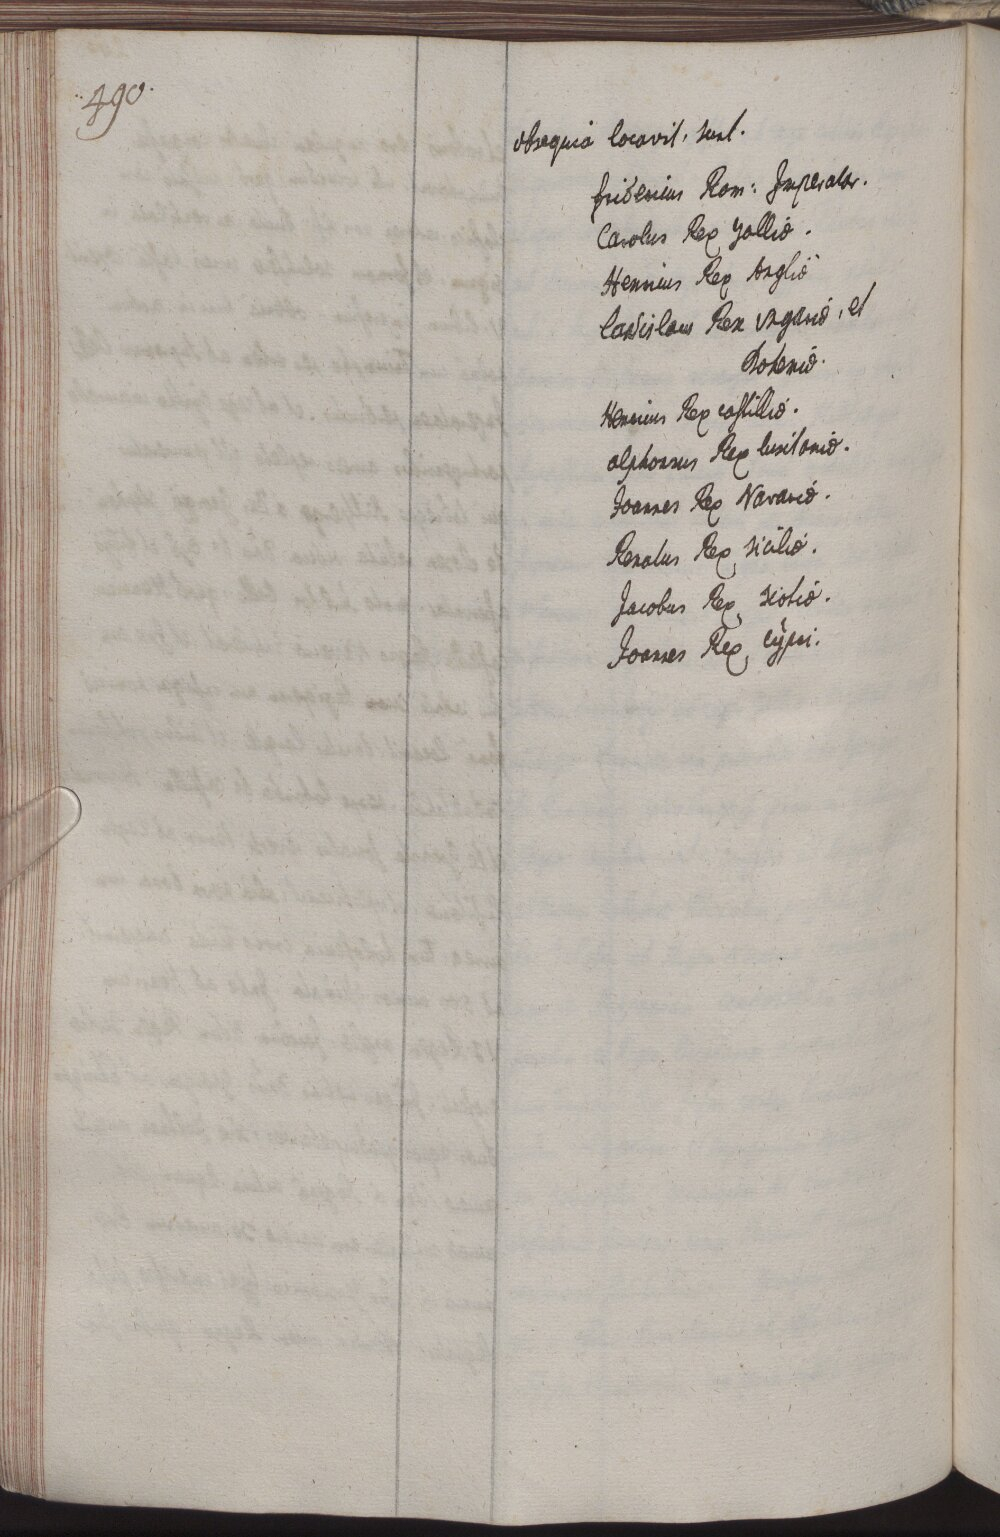 490.
obsequia locavit, sunt.
fridericus Rom: Imperator.
Carolus Rex galliæ.
Henricus Rex Angliæ
ladislaus Rex Vngariæ, et
Bohemiæ.
Henricus Rex castilliæ.
alphonsus Rex lusitaniæ.
Joannes Rex Navariæ.
Renatus Rex siciliæ.
Jacobus Rex scotiæ.
Joannes Rex cÿpri.